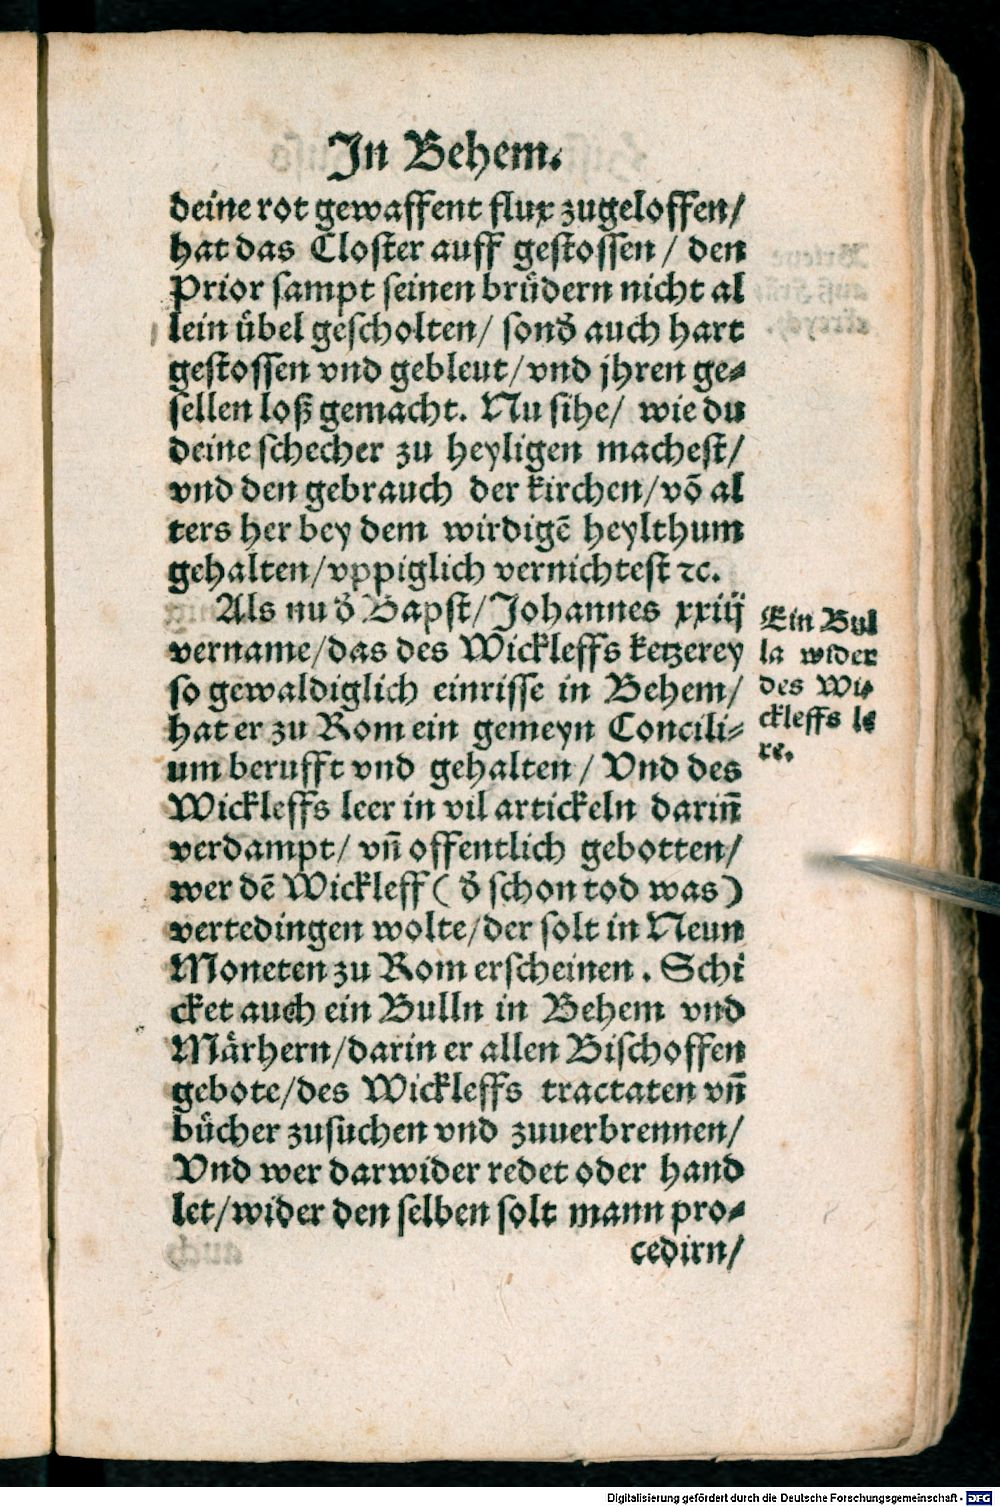 In Behem.
deine rot gewaffent flux zugeloffen/
hat das Closter auff gestossen / den
Prior sampt seinen brüdern nicht al
lein übel gescholten/ sonđ auch hart
gestossen vnd gebleut/vnd jhren ge⸗
sellen loß gemacht. Nu sihe/ wie du
deine schecher zu heyligen machest/
vnd den gebrauch der kirchen/vō al
ters her bey dem wirdigē heylthum
gehalten/vppiglich vernichtest ⁊c.
Als nu đ Bapst/Johannes xxiij
vername/das des Wickleffs ketzerey
so gewaldiglich einrisse in Behem/
hat er zu Rom ein gemeyn Concili⸗
um berufft vnd gehalten / Vnd des
Wickleffs leer in vil artickeln darin̄
verdampt/ vn̄ offentlich gebotten/
wer dē Wickleff ( đ schon tod was)
vertedingen wolte/der solt in Neun
Moneten zu Rom erscheinen . Schi
cket auch ein Bulln in Behem vnd
Märhern/darin er allen Bischoffen
gebote/des Wickleffs tractaten vn̄
bücher zusuchen vnd zuuerbrennen/
Vnd wer darwider redet oder hand
let/wider den selben solt mann pro⸗
cedirn/
Ein Bul
la wider
des Wi⸗
ckleffs le
re.
Digitalisierung gefördert durch die Deutsche Forschungsgemeinschaft - DFG